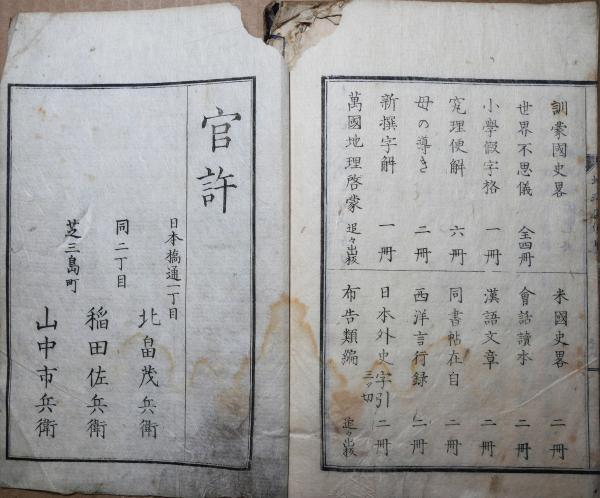 訓蒙國史畧
世界不思儀 全四冊
小學假字格 一冊
究理便解 六冊
母の導き 二冊
新撰字解 一冊
萬國地理啓蒙 追々出板
米國史畧 二冊
會話讀本 二冊
漢語文章 二冊
同書帖在白 二冊
西洋言行録 二冊
日本外史字引 三ツ切 二冊
布告類編 追々出板
官許
日本橋通一丁目
北畠茂兵衛
同二丁目
稲田佐兵衛
芝三島町
山中市兵衛